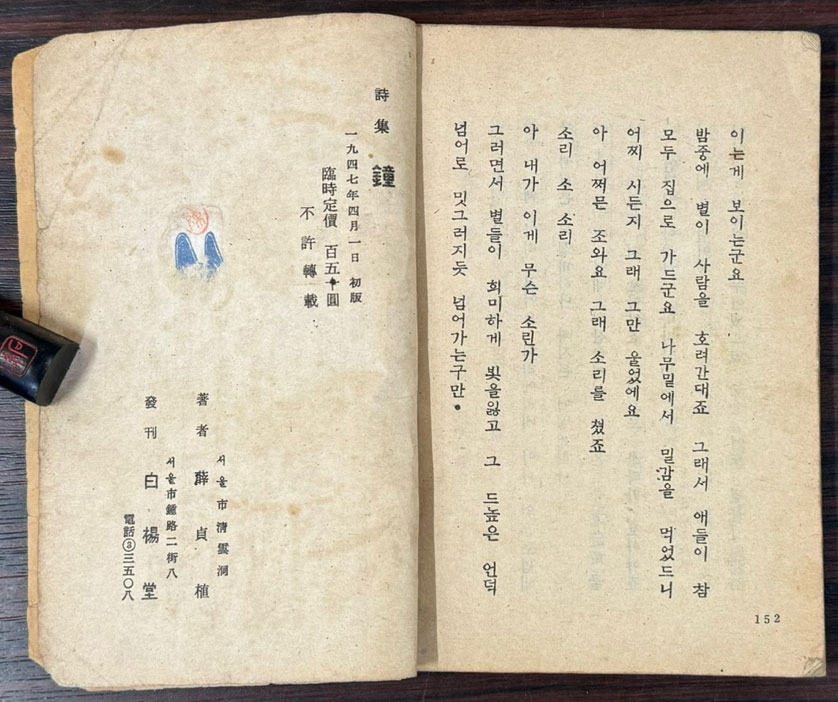 이는게 보이는군요
밤중에 별이 사람을 호려간대죠 그래서 애들이 참
모두 집으로 가드군요 나무밑에서 밀감을 먹었드니
어찌 시든지 그래 그만 울었에요
아 어쩌믄 조와요 그래 소리를 쳤죠
소리 소 소리
아 내가 이게 무슨 소린가
그러면서 별들이 희미하게 빛을잃고 그 드높은 언덕
넘어로 밋그러지듯 넘어가는구만.
152
詩集 鐘
一九四七年四月一日 初版
臨時定價 百五十圓
不許轉載
서울市淸雲洞
著者 薛貞植
서울市鍾路二街八
發刊 白楊堂
電話③三五〇八